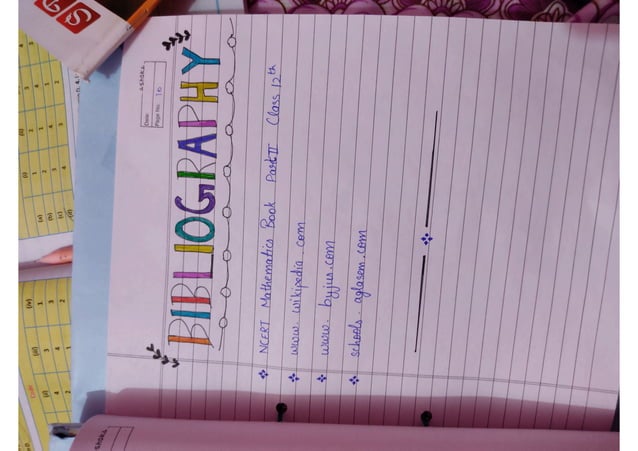 ASHOKA
Date
Page No. 10
BIBLIOGRAPHY
❖ NCERT Mathematics Book Part II Class 12th
❖ www. wikipedia. com
❖ www. byjus.com
❖ schools. aglasem.com
ASHOKA